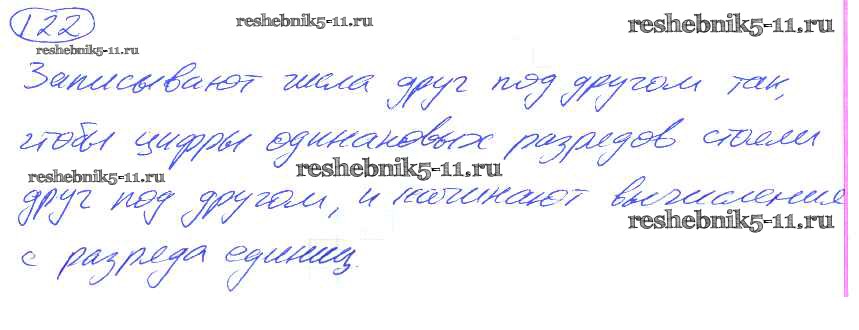 122
reshebnik5-11.ru
reshebnik5-11.ru
reshebnik5-11.ru
Записывают числа друг под другом так,
чтобы цифры одинаковых разрядов стояли
reshebnik5-11.ru
reshebnik5-11.ru
друг под другом, и начинают вычисления
reshebnik5-11.ru
с разряда единиц.